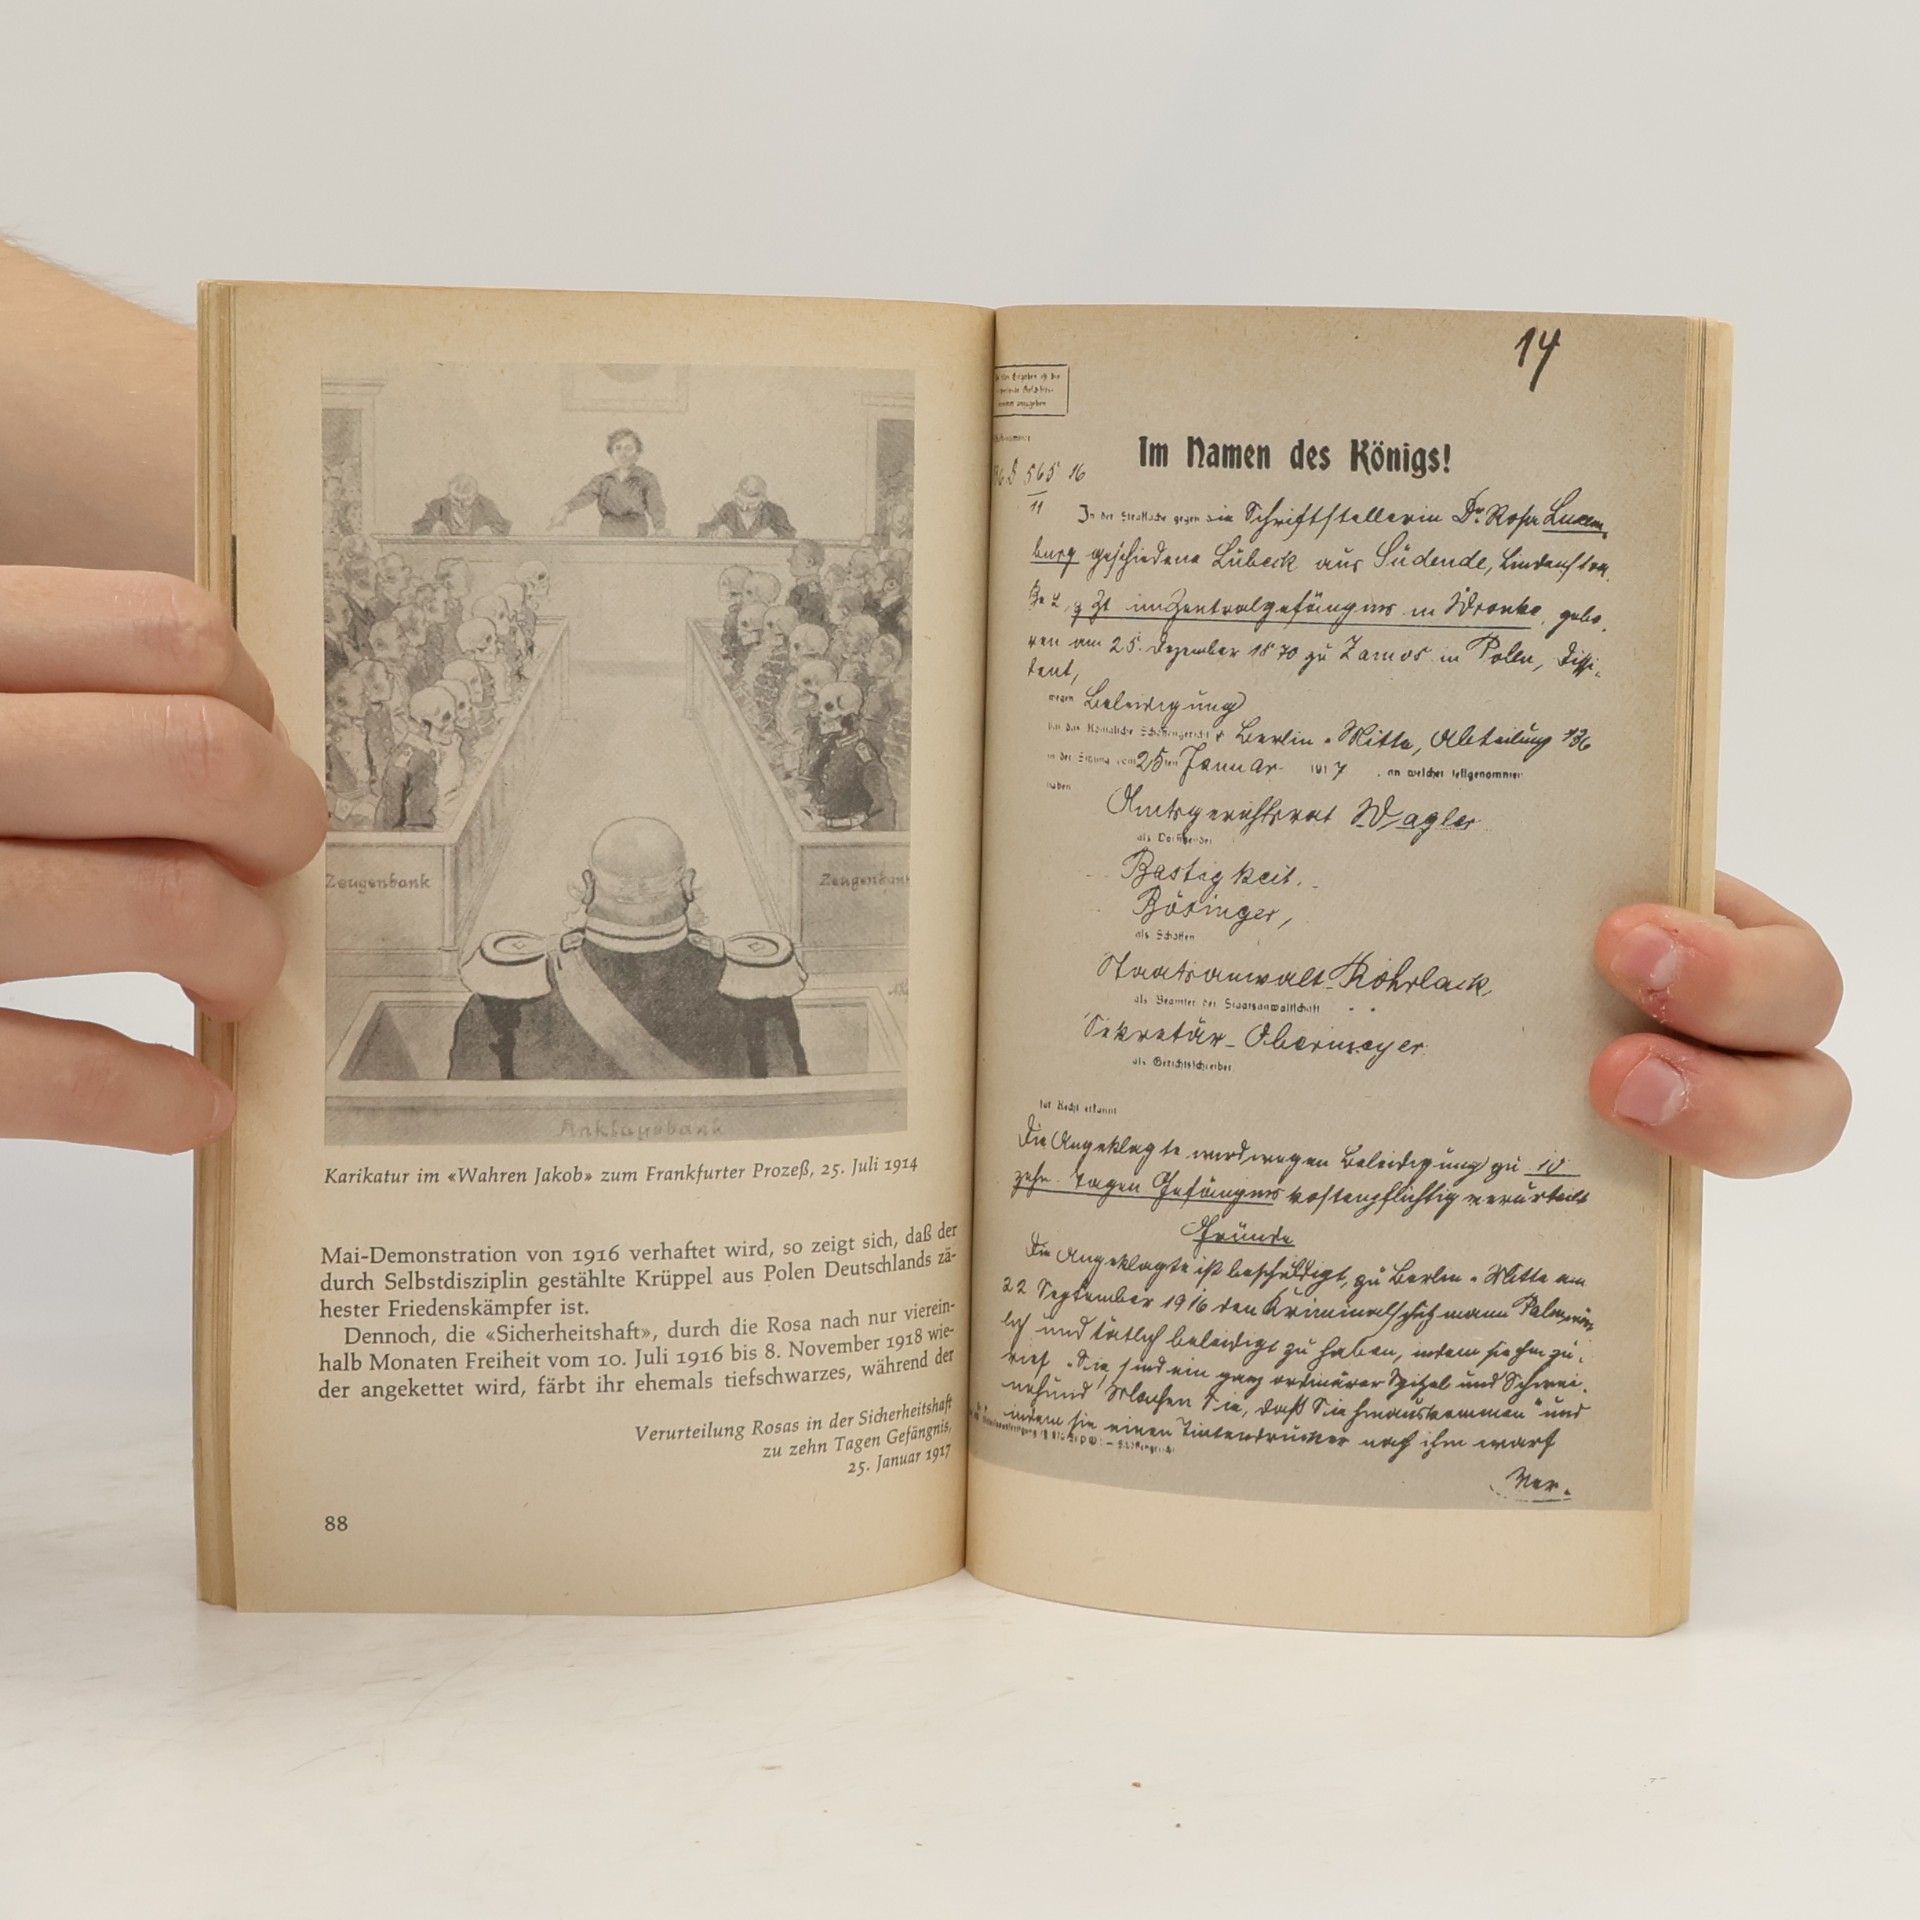 Zeugenbank
Zeugenbank
Anklagebank
Karikatur im «Wahren Jakob» zum Frankfurter Prozeß, 25. Juli 1914
Mai-Demonstration von 1916 verhaftet wird, so zeigt sich, daß der
durch Selbstdisziplin gestählte Krüppel aus Polen Deutschlands zä-
hester Friedenskämpfer ist.
Dennoch, die «Sicherheitshaft», durch die Rosa nach nur vierein-
halb Monaten Freiheit vom 10. Juli 1916 bis 8. November 1918 wie-
der angekettet wird, färbt ihr ehemals tiefschwarzes, während der
Verurteilung Rosas in der Sicherheitshaft
zu zehn Tagen Gefängnis,
25. Januar 1917
88
14
Im Namen des Königs!
565 16
11
In der Strafsache gegen die Schriftstellerin Dr. Rosa Luxem-
burg geschiedene Lübeck aus Südende, Lindenstra
ße 2, z Zt im Zentralgefängnis in Wronke, gebo-
ren am 25. Dezember 1870 zu Zamos in Polen, Dissi-
dent,
wegen Beleidigung
hat das Königliche Schöffengericht Berlin-Mitte, Abteilung 136
in der Sitzung vom 25ten Januar 1917, an welcher teilgenommen
haben
Amtsgerichtsrat Wagler
als Vorsitzender
Bastigkeit,
Bösinger,
als Schöffen
Staatsanwalt Rohrlack,
als Beamter der Staatsanwaltschaft
Sekretär Obermeyer
als Gerichtsschreiber
für Recht erkannt
Die Angeklagte wird wegen Beleidigung zu 10
zehn Tagen Gefängnis kostenpflichtig verurteilt
Gründe
Die Angeklagte ist beschuldigt, zu Berlin-Mitte am
22 September 1916 den Kriminalschutzmann
lich und tätlich beleidigt zu haben, indem sie ihm zu-
rief "Sie sind ein ganz ordinärer Spitzel und Schwei-
nehund Machen Sie, daß Sie hinauskommen" und
indem sie einen Tintendrucker nach ihm warf